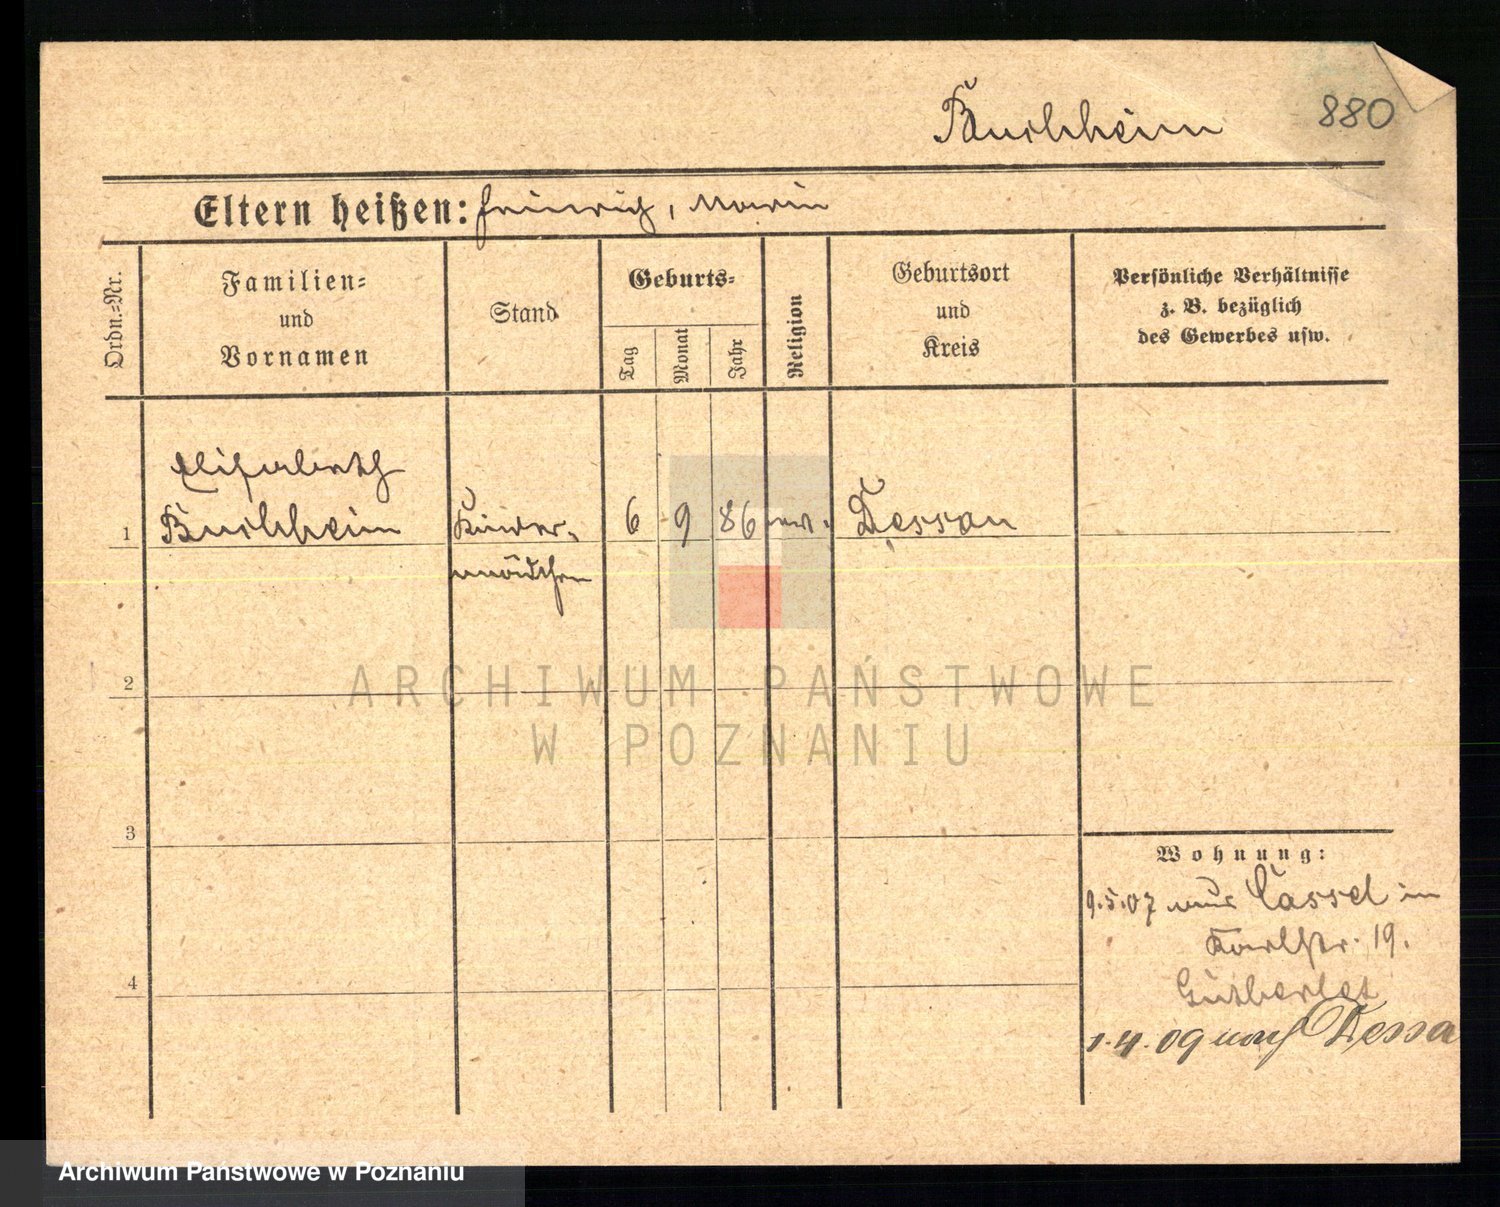 Buchheim
880
Eltern heißen: Heinrich, Marie
Ordn.-Nr.
Familien-
und
Vornamen
Stand
Geburts-
Tag
Monat
Jahr
Religion
Geburtsort
und
Kreis
Persönliche Verhältnisse
z. B. bezüglich
des Gewerbes usw.
Elisabeth
1 Buchheim Kinder- 6 9 86 Dessau
mädchen
2
3
4
Wohnung:
9.5.07 aus Cassel in
Karlstr. 19.
1.4.09 nach Dessa
ARCHIWUM PAŃSTWOWE
W POZNANIU
Archiwum Państwowe w Poznaniu